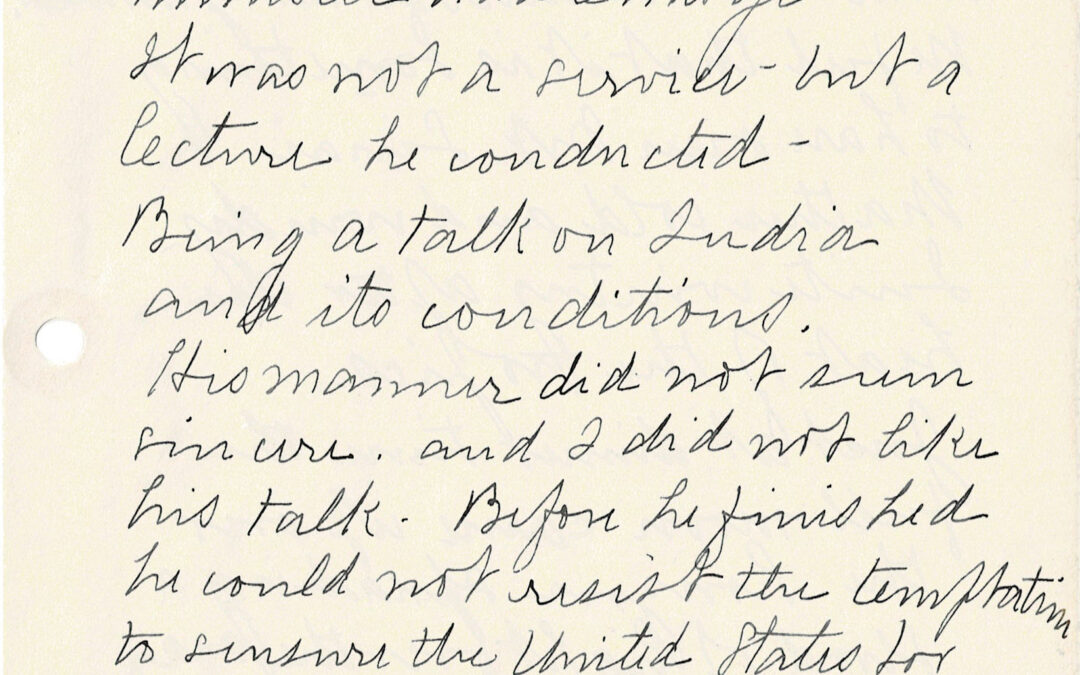 It was not a service - but a
lecture he conducted -
Being a talk on India
and its conditions.
His manner did not seem
sincere. and I did not like
his talk. Before he finished
he could not resist the temptation
to sensure the United States for